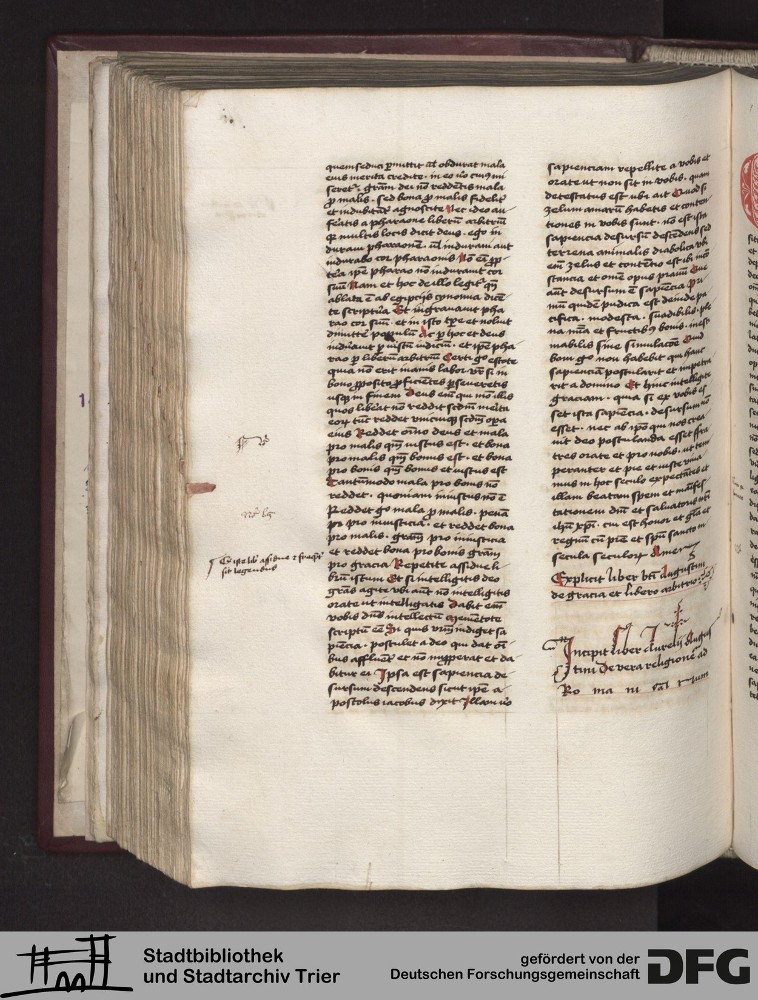 quem seduci p̄mittit ał obdurat mala
eius merita credite · in eo ūo cui9 mi
seret̄ · grām dei nō reddētis mala
ꝓ malis · sed bona ꝓ malis fidelit̄
et indubitāt agnoscite Nec ideo au
feratis a pharaone liberū arbitriū
q̄ multis locis dicit deus · ego in
duraui pharaonē · ul induraui aut
indurabo cor pharaonis Nō ē ꝓp
t̄ea ip̄e pharao nō indurauit cor
suū Nam et hoc de illo legit̄ qn̄
ablata ē ab egipcijs cynomia dicē
te scriptura Et ingrauauit pha
rao cor suū · et in isto tꝑe et noluit
dimitte populū Ac ꝑ hoc et deus
indurauit ꝑ iustū iudiciū · et ip̄e pha
rao ꝑ liberū arbitriū Certi ḡo estote
quia nō erit inanis labor vr̄ si in
bono ꝓposito ꝓficientes ꝑseueretis
usq̄ in finem Deus em̄ qui mō illis
quos liberat nō reddit scdm̄ merita
eorꝝ tūc reddet unicuiq̄ scdm̄ opa
eius Reddet om̄o deus et mala
pro malis qm̄ iustus est · et bona
pro malis qm̄ bonus est · et bona
pro bonis qm̄ bonus et iustus est
Tantūmodo mala pro bonis nō
reddet · quoniam iniustus nō ē
Reddet ḡo mala ꝓ malis · penā
pro iniusticia · et reddet bona
pro malis · grām pro iniusticia
et reddet bona pro bonis grām
pro gracia Repetite assidue li
brū istum Et si intelligitis deo
grās agite vbi aūt nō intelligitis
orate ut intelligatis Dabit em̄
vobis dn̄s intellectū Mementote
scriptū eē Si quis vr̄m indiget sa
piēcia · postulet a deo qui dat om̄i
bus affluent̄ et nō inp̄perat et da
bitur ei Ipsa est sapiencia de
sursum descendens sicut ip̄e a
postolus iacobus dixit Illam ūo
Et iste lib̄ assidue ⁊ freqn̄t̄
sit legendus
sapienciam repellite a vobis et
orate ut non sit in vobis · quam
detestatus est ubi ait Quod si
zelum amarū habetis et conten
tiones in vobis sunt · nō est ista
sapiencia desursū descendēs sed
terrena animalis diabolica vbi
em̄ zelus et contētio est ibi incō
stancia et om̄e opus prauū Que
aūt desursum ē sapiēcia pri
mū quidē pudica est deinde pa
cifica · modesta · suadibilis · ple
na mīa et fructib9 bonis · inesti
mabilis sine simulacōe Quid
boni ḡo non habebit qui hanc
sapienciā postulauit et impetra
vit a domino Et hinc intelligite
graciam · quia si ex vobis es
set ista sapiēcia · desursū nō
esset · nec ab ip̄o qui nos crea
uit deo postulanda esset fra
tres orate et pro nobis · ut tem
peranter et pie et iuste viua
mus in hoc seculo expectātes et
illam beatam spem et manifes
tationem dn̄i et saluatoris nr̄i
ih̄u xp̄i · cui est honor et glīa et
regnū cū pr̄e et sp̄u sancto in
secula seculorꝝ Amen
Explicit liber bt̄i Augustini
de gracia et libero arbitrio
Incipit liber Aurelij Augus
tini De vera religione ad
Ro ma ni
Stadtbibliothek
und Stadtarchiv Trier
gefördert von der
Deutschen Forschungsgemeinschaft
DFG